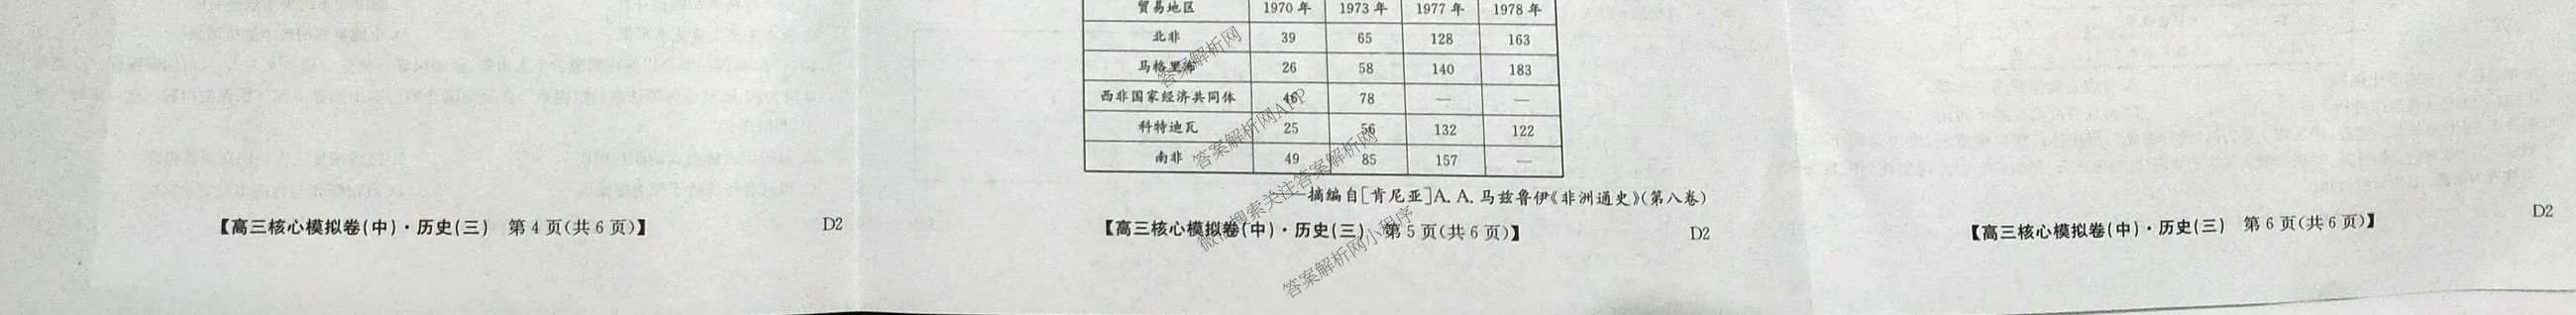 贸易地区 1970年 1973年 1977年 1978年
北非 39 65 128 163
马格里布 26 58 140 183
西非国家经济共同体 46 78 — —
科特迪瓦 25 56 132 122
南非 49 85 157 —
摘编自[肯尼亚]A.A.马兹鲁伊《非洲通史》(第八卷)
【高三核心模拟卷(中)·历史(三) 第4页(共6页)】 D2
【高三核心模拟卷(中)·历史(三) 第5页(共6页)】 D2
【高三核心模拟卷(中)·历史(三) 第6页(共6页)】 D2
答案解析网
答案解析网APP
微信搜索关注答案解析网
答案解析网小程序